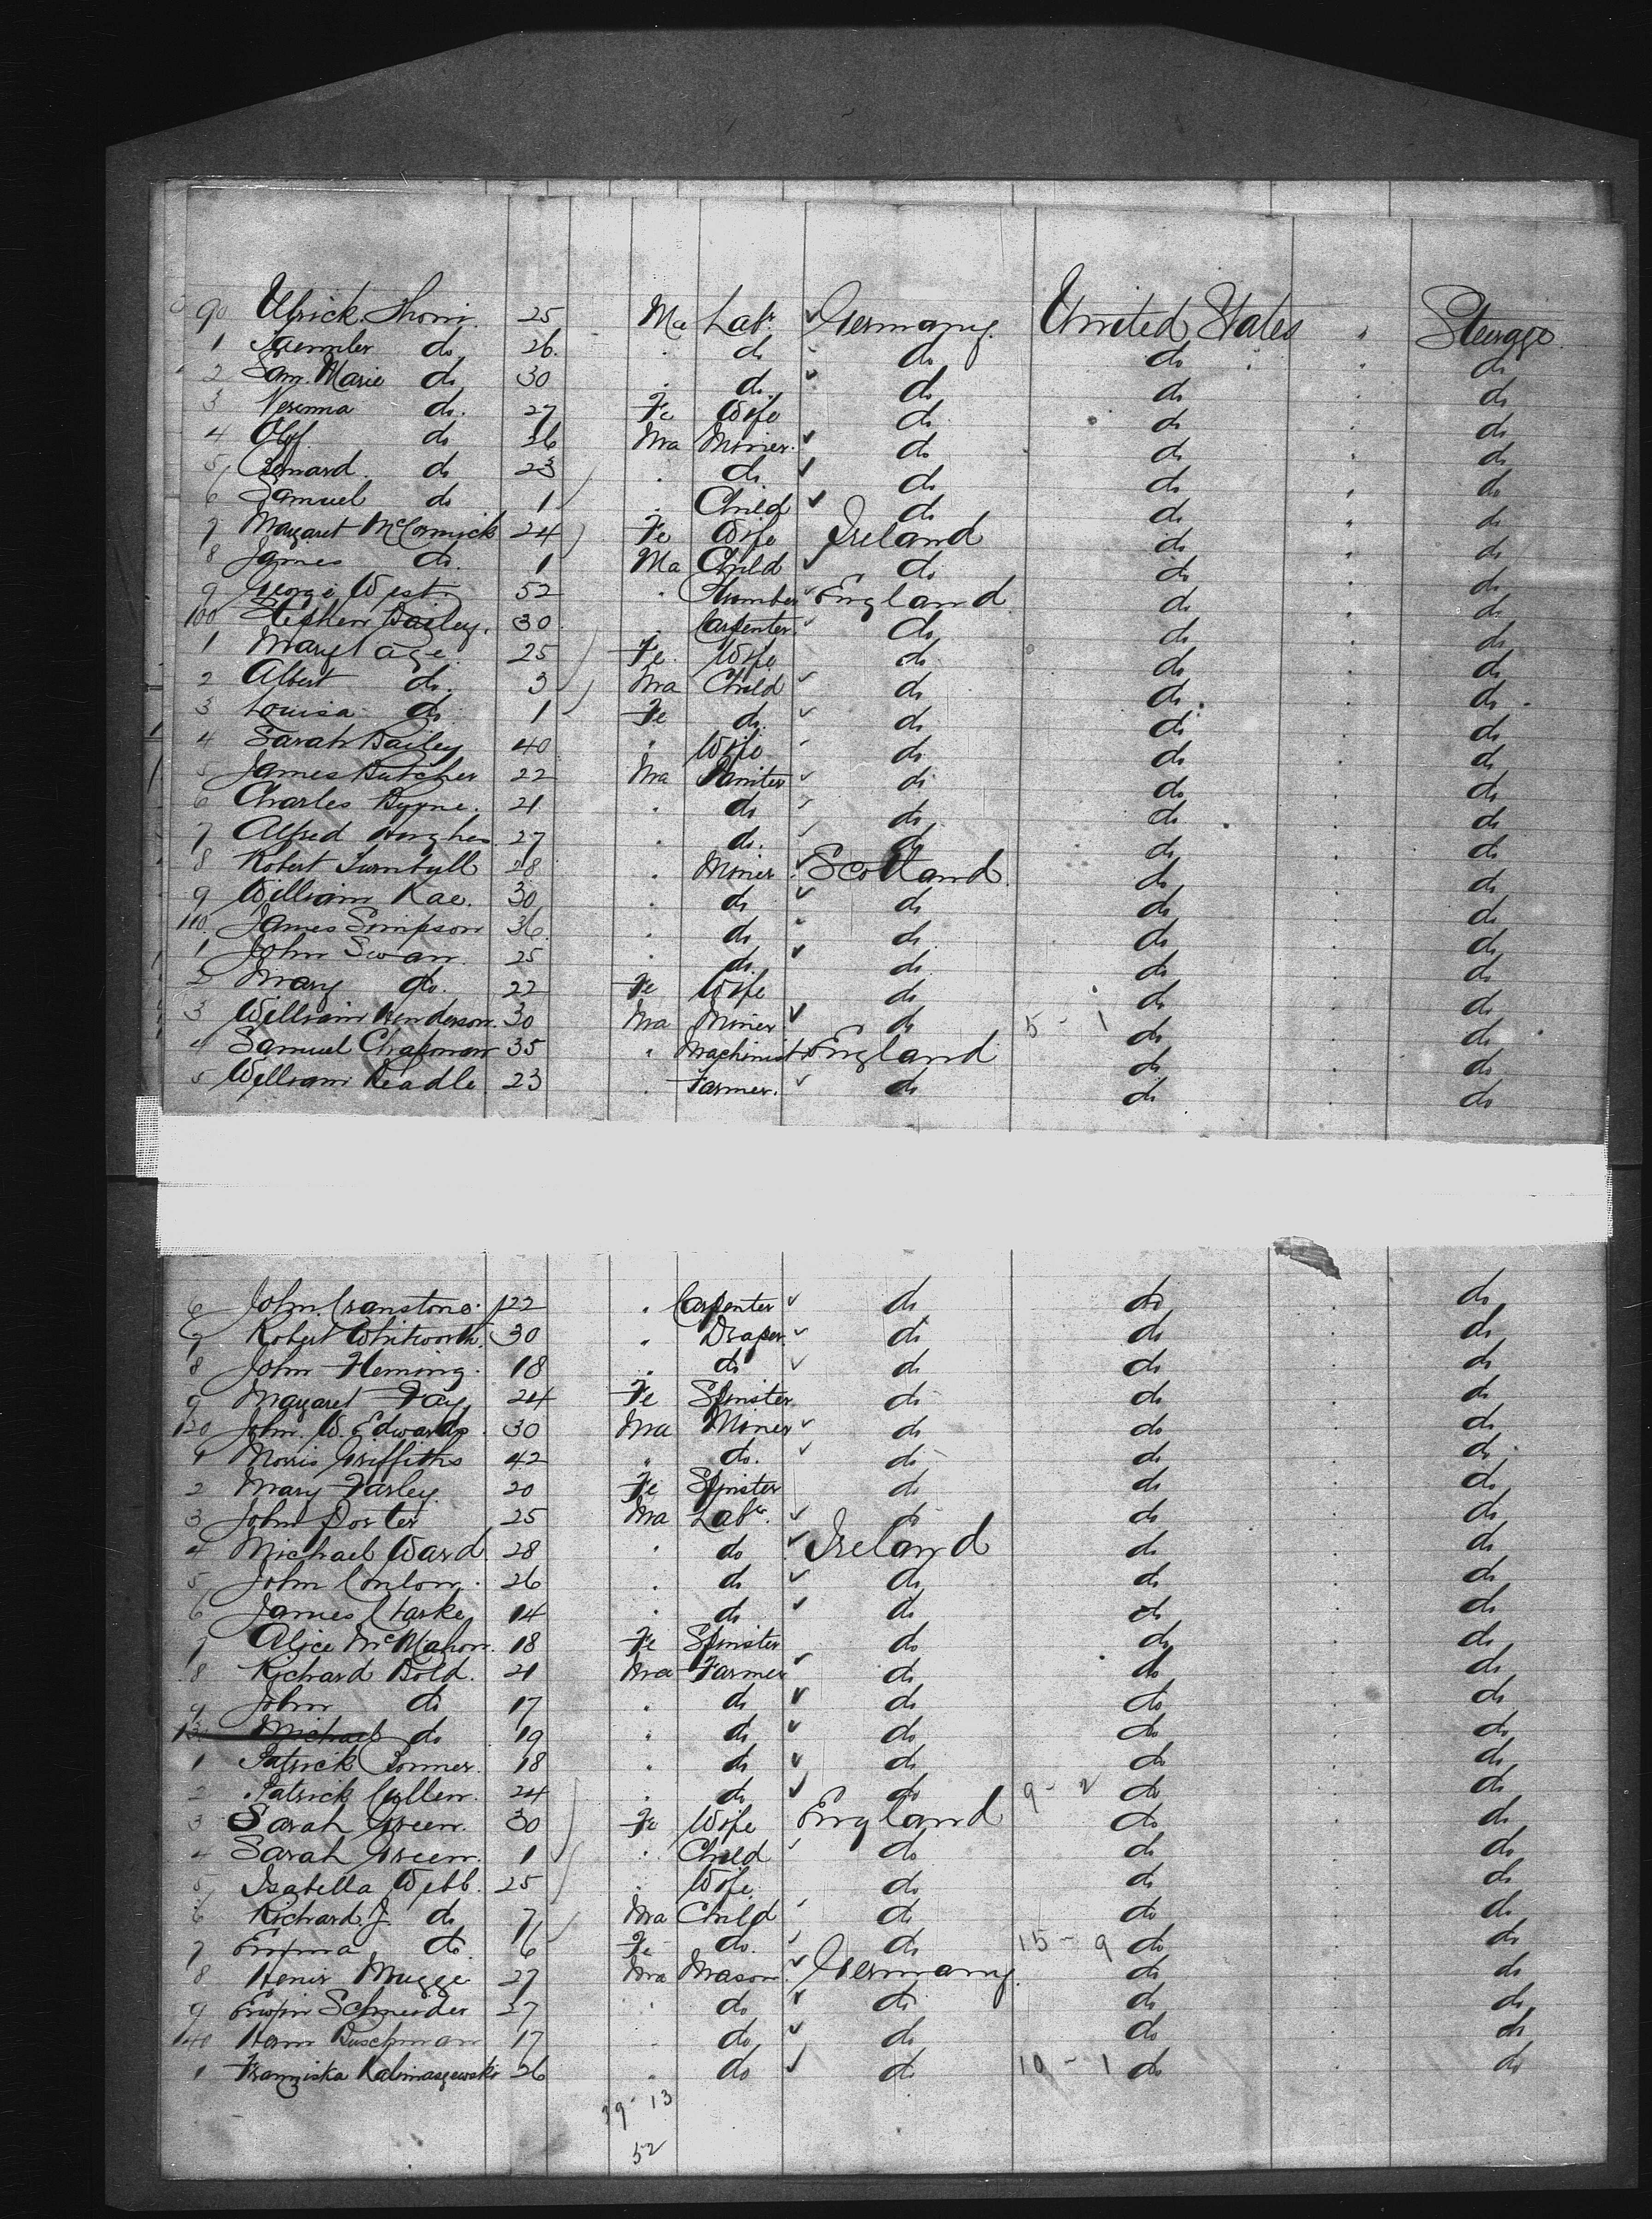 90 Ulrick Thoni. 25 Ma Labr. Germany United States " Steerage.
1 do 26. " do do do " do
2 Sam. Marie do 30 " do. do do do
3 Verenna do. 27 Fe Wife do do do
4 Olof do 26 Ma Miner. do do do
5 Bernard. do 23 " do do do do
6 Samuel do 1 " Child do do " do
7 Margaret McCormick 24 Fe Wife Ireland do " do
8 James do. 1 Ma Child do do " do
9 George West 52 " Plumber England do " do
100 Stephen Bailey. 30 " Carpenter do do do
1 Mary Page 25 Fe. Wife do do do
2 Albert do. 3 Ma Child do do do
3 Louisa do 1 Fe do. do do do
4 Sarah Bailey 40 " Wife do do do
5 James Butcher 22 Ma Painter do do do
6 Charles Byrne. 21 " do do do do
7 Alfred Hughes 27 " do. do do do
8 Robert Turnbull 28 " Miner Scotland do do
9 William Rae. 30 " do do do do
110 James Simpson 36 " do do do do
1 John Swan 25 " do. do do do
2 Mary do. 22 Fe Wife do do do
3 William Henderson. 30 Ma Miner do 5 - 1 do do
4 Samuel Chapman 35 " Machinist England do do
5 William Readle 23 " Farmer. do do do
6 John Cranstone. 22 " Carpenter do do do
7 Robert Whitworth. 30 " Draper do do do
8 John Fleming. 18 " do do do do
9 Margaret Fay 24 Fe Spinster do do do
120 John. W. Edwards 30 Ma Miner do do do
1 Morris Griffiths 42 " do. do do do
2 Mary Farley 20 Fe Spinster do do do
3 John Porter 25 Ma Labr. do do do
4 Michael Ward 28 " do Ireland do do
5 John Conlon. 26 " do do do do
6 James Clarke 14 " do do do do
7 Alice McMahon. 18 Fe Spinster do do do
8 Richard Bold. 21 Ma Farmer do do do
9 John do 17 " do do do do
130 Michael do 19 " do do do do
1 Patrick Conner. 18 " do do do do
2 Patrick Cullen. 24 " do do 9 - 2 do do
3 Sarah Green. 30 Fe Wife England do do
4 Sarah Green. 1 " Child do do do
5 Isabella Webb. 25 " Wife do do do
6 Richard. J. do 7 Ma Child do do do
7 Emma do 6 Fe do. do 15 - 9 do do
8 Henir Mugge 27 Ma Mason Germany. do do
9 Erwin Schneider 27 " do do do do
140 Herm Buschman 17 " do do do do
1 Franziska Kalimaszewski 26 " do do 10 - 1 do do
39 - 13
52